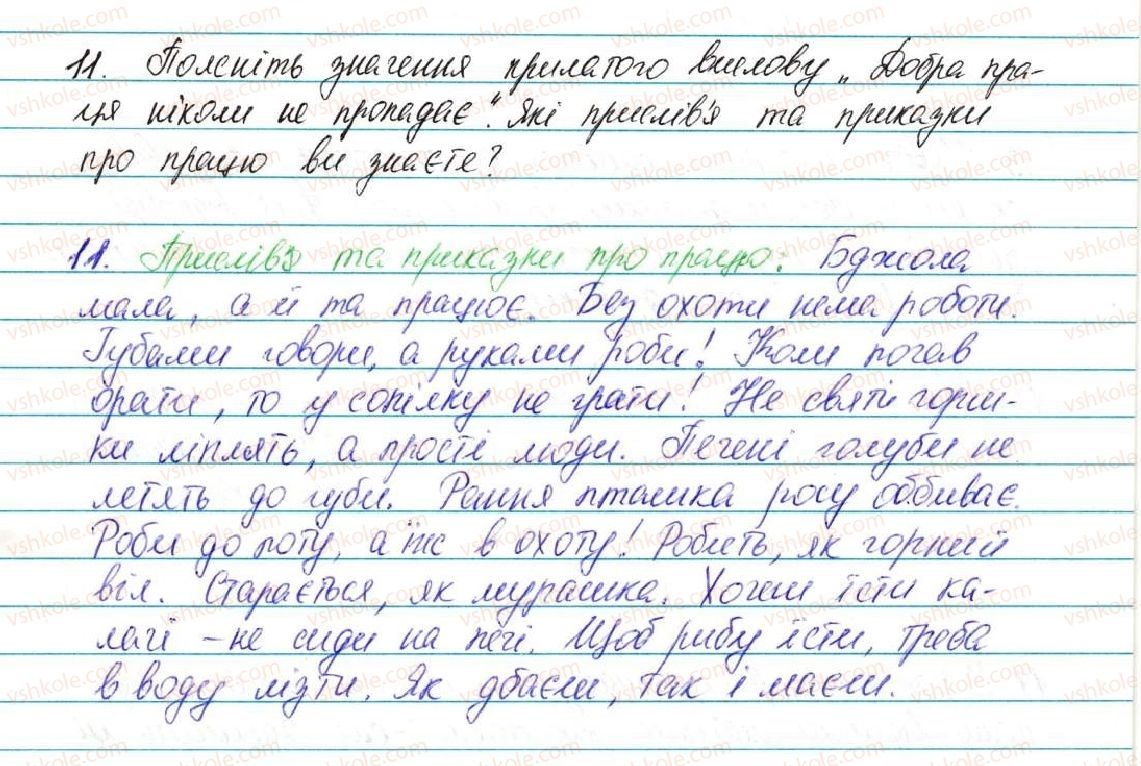 11. Поясніть значення крилатого вислову „Добра пра-
ця ніколи не пропадає“. Які прислів'я та приказки
про працю ви знаєте?
11. Прислів'я та приказки про працю: Бджола
мала, а й та працює. Без охоти нема роботи.
Губами говори, а руками роби! Коли почав
орати, то у сопілку не грати! Не святі горш-
ки ліплять, а прості люди. Печені голуби не
летять до губи. Рання пташка росу оббиває.
Роби до поту, а їж в охоту! Робить, як горний
віл. Старається, як мурашка. Хочеш їсти ка-
лачі – не сиди на печі. Щоб рибу їсти, треба
в воду лізти. Як дбаєш, так і маєш.
vshkole.com